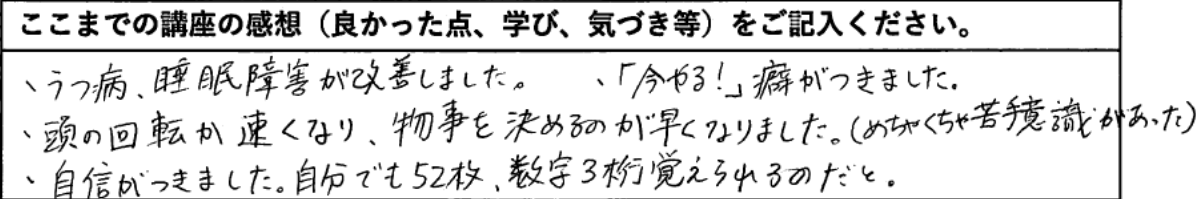 ここまでの講座の感想（良かった点、学び、気づき等）をご記入ください。
、うつ病、睡眠障害が改善しました。 、「今やる！」癖がつきました。
、頭の回転が速くなり、物事を決めるのが早くなりました。（めちゃくちゃ苦手意識があった）
、自信がつきました。自分でも52枚、数字3桁覚えられるのだと。